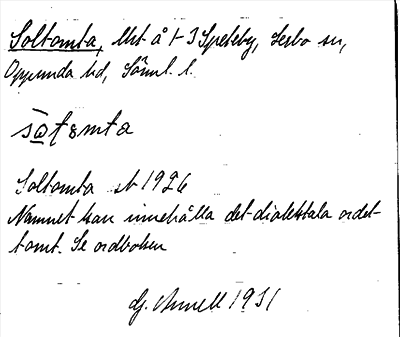 Soltomta, lht å 1-3 Spekeby, Lerbo sn,
Oppunda hd, Söml. l.
Soltomta st 1926
Namnet kan innehålla det dialektala ordet
tomt. Se ordboken
G. Annell 1931